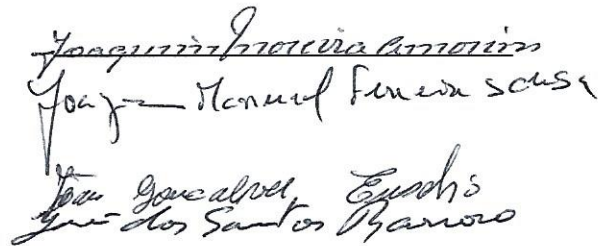 Joaquim Moreira Amorim
Manuel Ferreira Sousa
João Gonçalves Eusébio
dos Santos Barroso